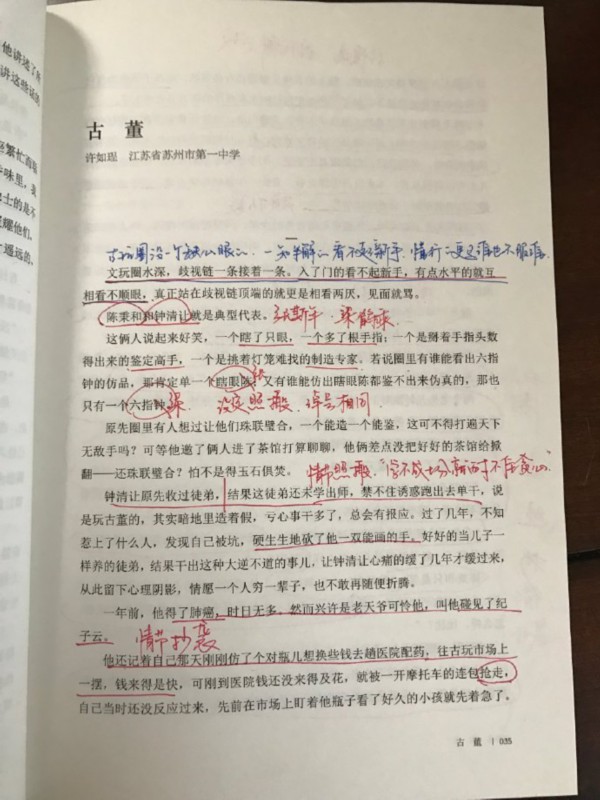 他讲述了
讲这些话的
遥远的。
古 董
许如瑆 江苏省苏州市第一中学
一
古玩圈没一个缺心眼的. 一知半解的看不起新手. 懂行的更是谁也不服谁.
文玩圈水深,歧视链一条接着一条。入了门的看不起新手,有点水平的就互
相看不顺眼,真正站在歧视链顶端的就更是相看两厌,见面就骂。
陈秉和和钟清让就是典型代表。
张斯年
这俩人说起来好笑,一个瞎了只眼,一个多了根手指;一个是掰着手指头数
得出来的鉴定高手,一个是挑着灯笼难找的制造专家。若说圈里有谁能看出六指
钟的仿品,那肯定单一个瞎眼陈,又有谁能仿出瞎眼陈都鉴不出来伪真的,那也
只有一个六指钟。
照搬
绰号相同
原先圈里有人想过让他们珠联璧合,一个能造一个能鉴,这可不得打遍天下
无敌手吗?可等他邀了俩人进了茶馆打算聊聊,他俩差点没把好好的茶馆给掀
翻——还珠联璧合?怕不是得玉石俱焚。
情节照搬
钟清让原先收过徒弟,结果这徒弟还未学出师,禁不住诱惑跑出去单干,说
是玩古董的,其实暗地里造着假,亏心事干多了,总会有报应。过了几年,不知
惹上了什么人,发现自己被坑,硬生生地砍了他一双能画的手。好好的当儿子一
样养的徒弟,结果干出这种大逆不道的事儿,让钟清让心痛的缓了几年才缓过来,
从此留下心理阴影,情愿一个人穷一辈子,也不敢再随便折腾。
一年前,他得了肺癌,时日无多,然而兴许是老天爷可怜他,叫他碰见了纪
子云。
情节抄袭
他还记着自己那天刚刚仿了个对瓶儿想换些钱去趟医院配药,往古玩市场上
一摆,钱来得是快,可刚到医院钱还没来得及花,就被一开摩托车的连包抢走,
自己当时还没反应过来,先前在市场上盯着他瓶子看了好久的小孩就先着急了。
古 董 | 035